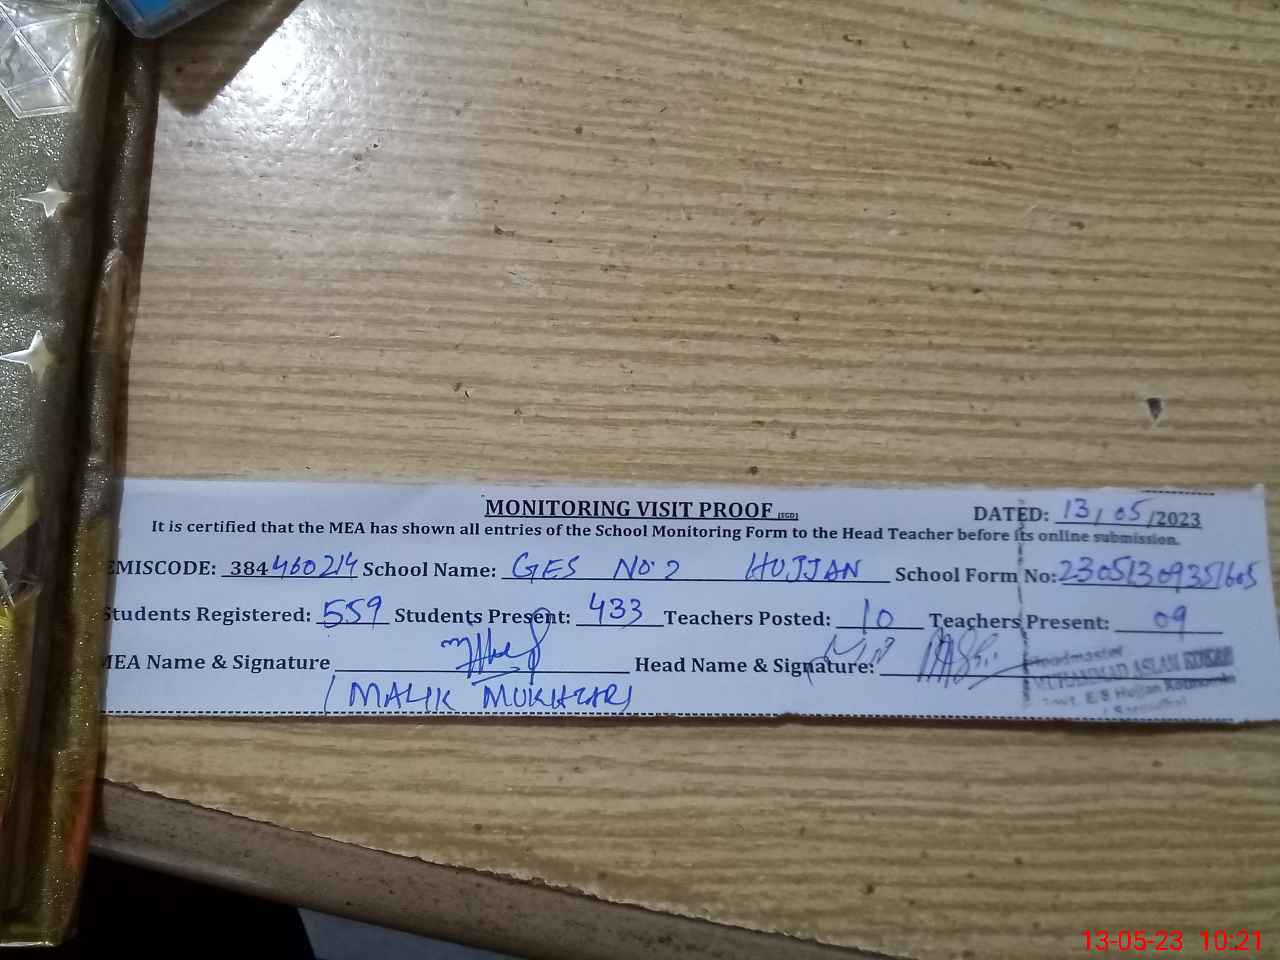 MONITORING VISIT PROOF (EGD)
DATED: 13/05/2023
It is certified that the MEA has shown all entries of the School Monitoring Form to the Head Teacher before its online submission.
EMISCODE: 384460214 School Name: GES NO.2 HUJJAN School Form No: 23051309351605
Students Registered: 559 Students Present: 433 Teachers Posted: 10 Teachers Present: 09
MEA Name & Signature Head Name & Signature:
(MALIK MUKHTAR)
Headmaster
MUHAMMAD ASLAM
Govt. E/S Hujjan
13-05-23 10:21